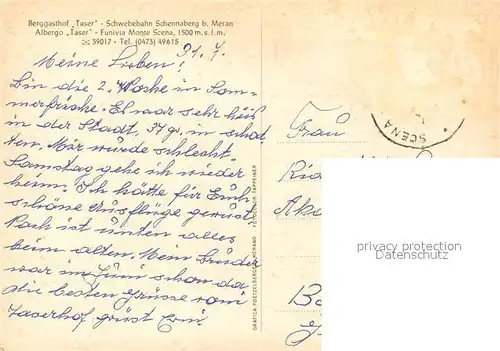 Berggasthof „Taser" - Schwebebahn Schennaberg b. Meran
Albergo „Taser" - Funivia Monte Scena, 1500 m.s.l.m.
✉ 39017 - Tel. (0473) 49615
31. 7.
Meine Lieben!
Bin die 2. Woche in Som-
merfrische. Es war sehr heiß
in der Stadt, 37 gr. in schat-
ten. Mir wurde schlecht.
Samstag gehe ich wieder
heim. Ich hätte für Euch
schöne Ausflüge gewüst.
Noch ist unten alles
beim alten. Mein Bruder
war im Juni schon da
die besten Grüsse vom
Taserhof grüst Erni.
GRAFICA POETZELBERGER MERANO FOTOCOLOR TAPPEINER
SCENA
Frau
privacy protection
AnsichtskartenVersand.com